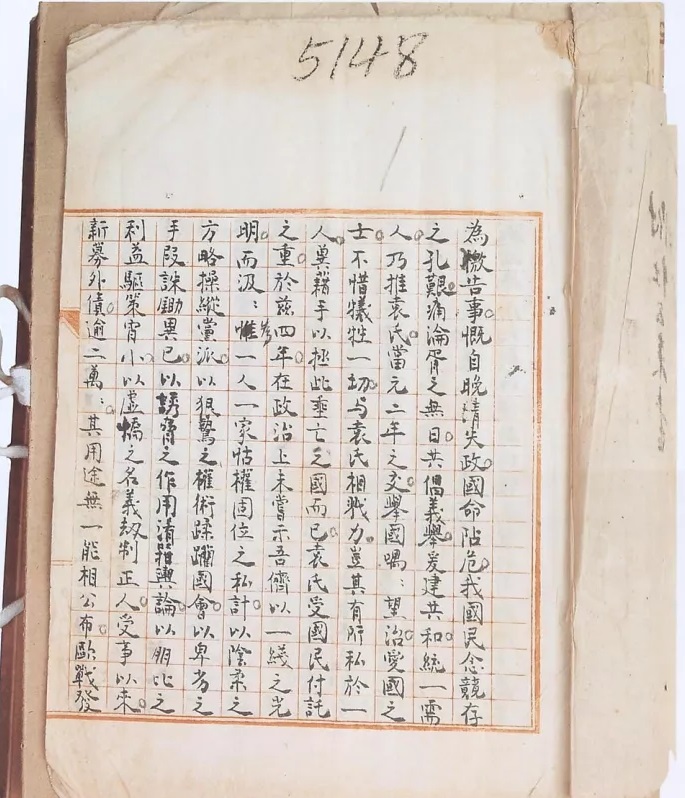 5148
為檄告事。慨自晚清失政。國命阽危。我國民念競存
之孔艱。痛淪胥之無日。共倡義舉。爰建共和。統一需
人。乃推袁氏。當元二年之交。舉國喁〻望治。愛國之
士。不惜犧牲一切。与袁氏相戮力。豈其有所私於一
人。冀藉手以拯此垂亡之國而已。袁氏受國民付託
之重。於兹四年。在政治上未嘗示吾儕以一綫之光
明。而汲〻惟一人一家怙權固位之私計。以陰柔之
方略操縱黨派。以狠鷙之權術蹂躪國會。以卑劣之
手段誅鋤異己。以誘脅之作用淆箝輿論。以朋比之
利益驅策宵小。以虛憍之名義刼制正人。受事以来。
新募外債逾二萬〻。其用途無一能相公布。歐戰發